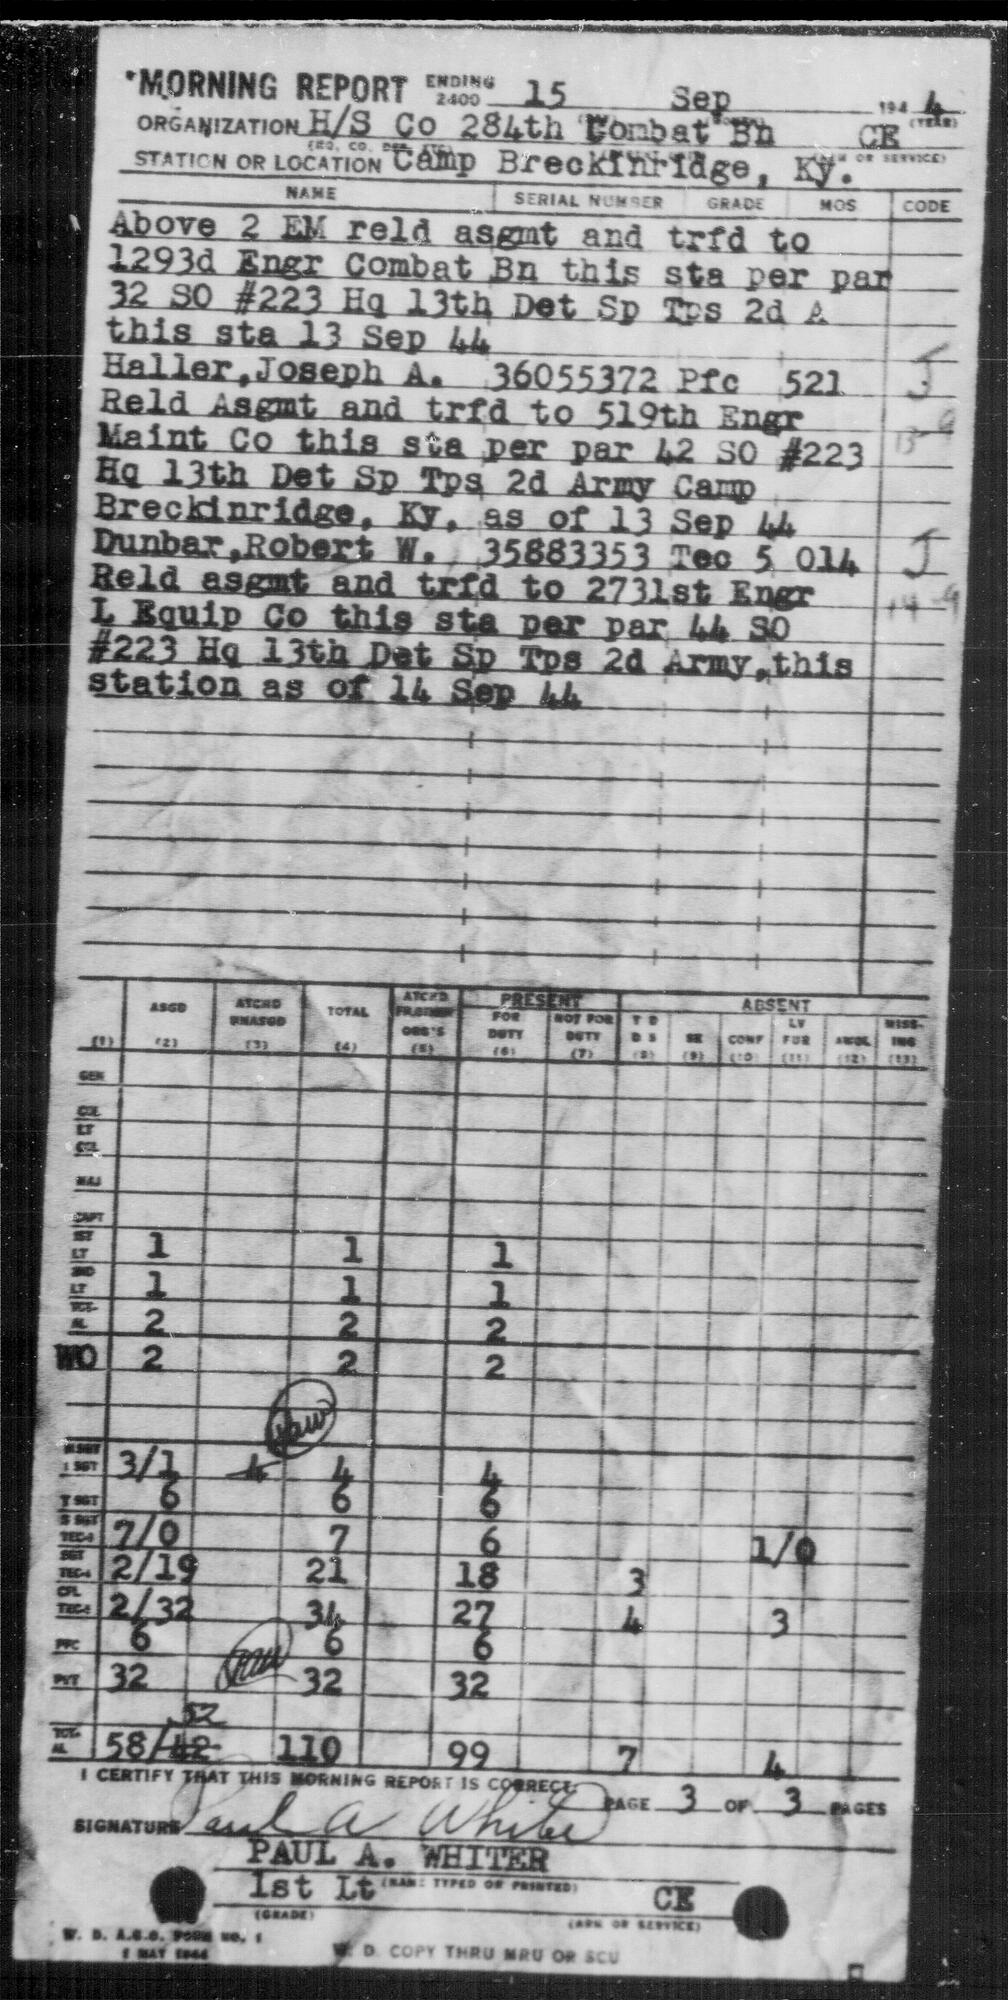 *MORNING REPORT ENDING 2400 15 Sep 194 4
(YEAR)
ORGANIZATION H/S Co 284th Combat Bn CE
STATION OR LOCATION Camp Breckinridge, Ky. (ARM OR SERVICE)
NAME SERIAL NUMBER GRADE MOS CODE
Above 2 EM reld asgmt and trfd to
1293d Engr Combat Bn this sta per par
32 SO #223 Hq 13th Det Sp Tps 2d A
this sta 13 Sep 44
Haller,Joseph A. 36055372 Pfc 521 J
Reld Asgmt and trfd to 519th Engr
Maint Co this sta per par 42 SO #223 13-9
Hq 13th Det Sp Tps 2d Army Camp
Breckinridge, Ky, as of 13 Sep 44
Dunbar,Robert W. 35883353 Tec 5 014 J
Reld asgmt and trfd to 2731st Engr
L Equip Co this sta per par 44 SO 14-9
#223 Hq 13th Det Sp Tps 2d Army,this
station as of 14 Sep 44
PRESENT ABSENT
(1) ASGD (2) ATCHD UNASGD (3) TOTAL (4) ATCHD FR OTHER ORG'S (5) FOR DUTY (6) NOT FOR DUTY (7) T D D S (8) SK (9) CONF (10) LV FUR (11) AWOL (12) MISSING (13)
GEN
COL
LT COL
MAJ
CAPT
1ST LT 1 1 1
2ND LT 1 1 1
TOT-AL 2 2 2
WO 2 2 2
paw
M SGT
1 SGT 3/1 4 4 4
T SGT 6 6 6
S SGT
TEC-3 7/0 7 6 1/0
SGT
TEC-4 2/19 21 18 3
CPL
TEC-5 2/32 34 27 4 3
PFC 6 6 6
paw
PVT 32 32 32
52
TOT-AL 58/42 110 99 7 4
I CERTIFY THAT THIS MORNING REPORT IS CORRECT.
PAGE 3 OF 3 PAGES
SIGNATURE Paul A Whiter
PAUL A. WHITER
(NAME TYPED OR PRINTED)
1st Lt CE
(GRADE) (ARM OR SERVICE)
W. D. A.G.O. FORM NO. 1
1 MAY 1944
W. D. COPY THRU MRU OR SCU